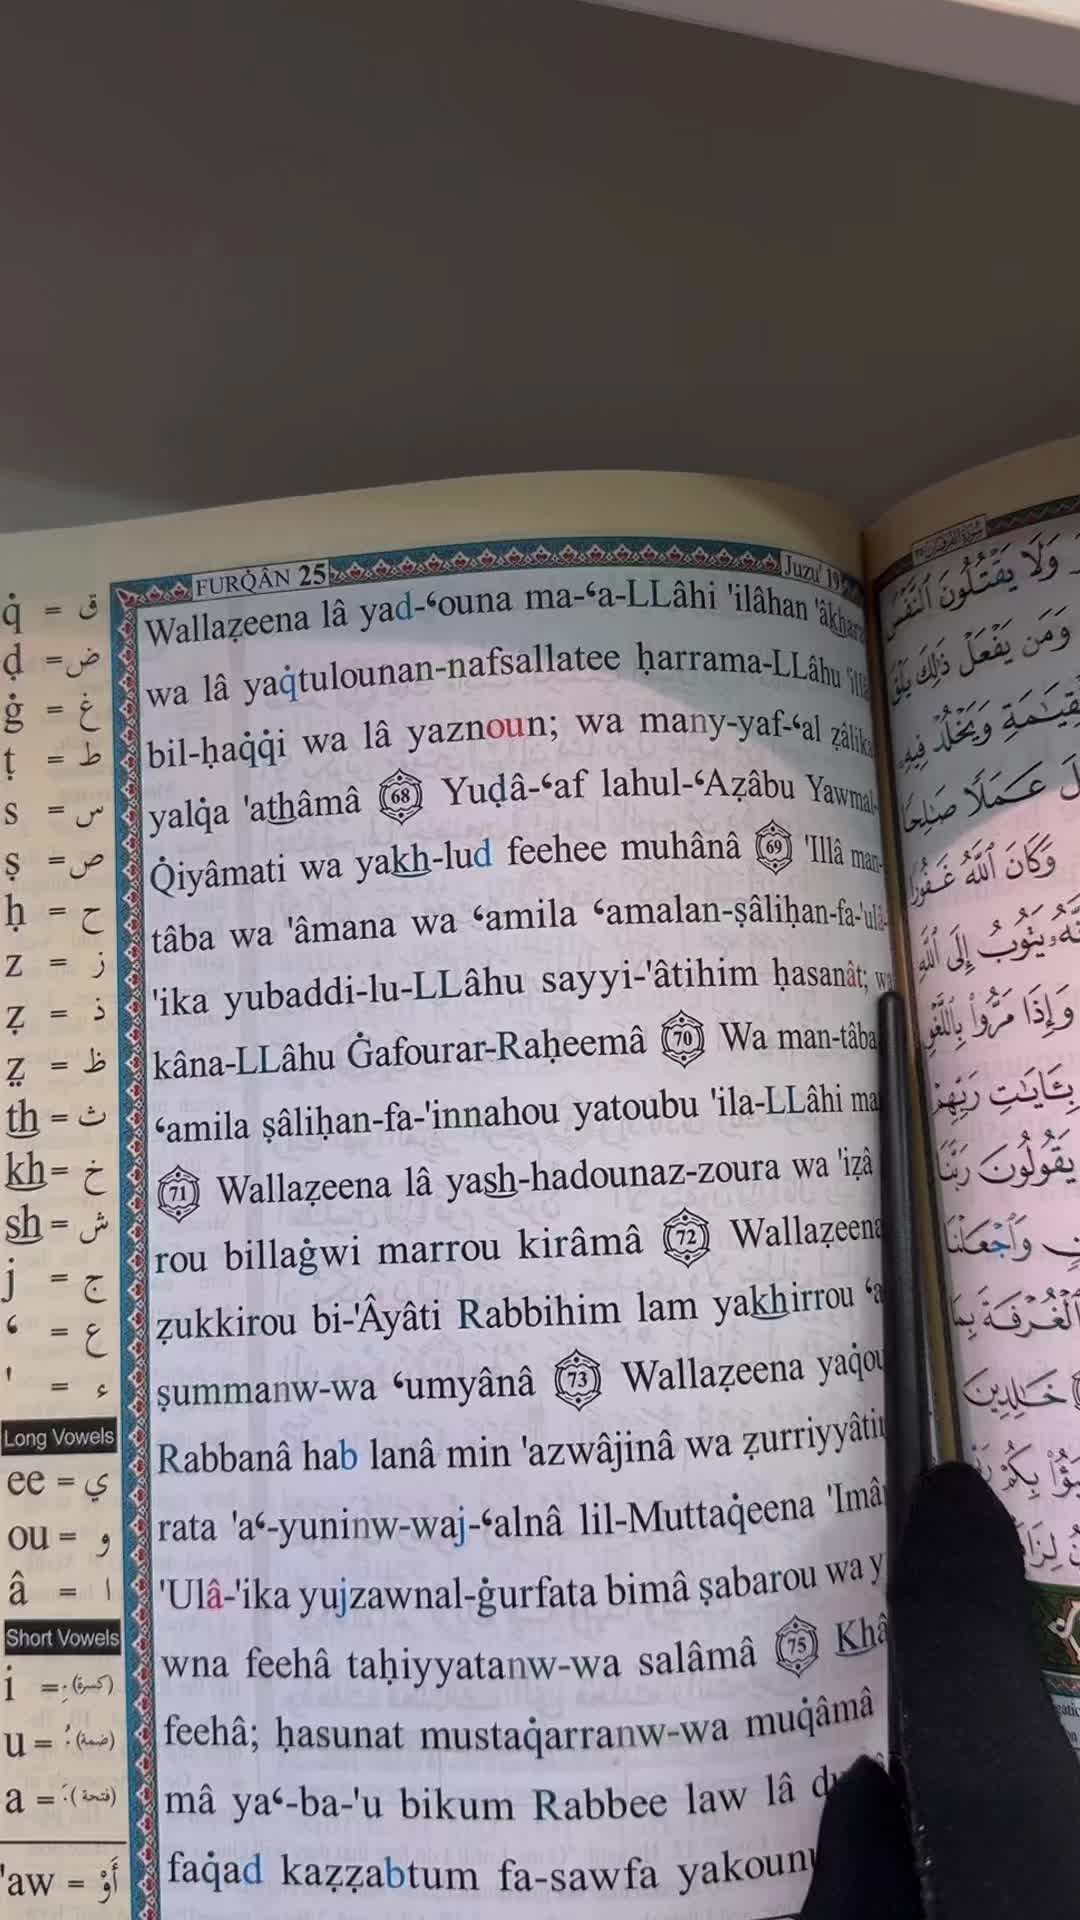 FURQ̇ÂN 25
Juzu' 19
Wallaẓeena lâ yad-‘ouna ma-‘a-LLâhi 'ilâhan 'âkhara
wa lâ yaq̇tulounan-nafsallatee ḥarrama-LLâhu 'illâ
bil-ḥaq̇q̇i wa lâ yaznoun; wa many-yaf-‘al ẓâlika
yalq̇a 'athâmâ 68 Yuḍâ-‘af lahul-‘Aẓâbu Yawmal-
Q̇iyâmati wa yakh-lud feehee muhânâ 69 'Illâ man-
tâba wa 'âmana wa ‘amila ‘amalan-ṣâliḥan-fa-'ulâ-
'ika yubaddi-lu-LLâhu sayyi-'âtihim ḥasanât; wa
kâna-LLâhu Ġafourar-Raḥeemâ 70 Wa man-tâba
‘amila ṣâliḥan-fa-'innahou yatoubu 'ila-LLâhi ma
71 Wallaẓeena lâ yash-hadounaz-zoura wa 'iẓâ
rou billaġwi marrou kirâmâ 72 Wallaẓeena
ẓukkirou bi-'Âyâti Rabbihim lam yakhirrou ‘a
ṣummanw-wa ‘umyânâ 73 Wallaẓeena yaq̇ou
Rabbanâ hab lanâ min 'azwâjinâ wa ẓurriyyâtin
rata 'a‘-yuninw-waj-‘alnâ lil-Muttaq̇eena 'Imâ
'Ulâ-'ika yujzawnal-ġurfata bimâ ṣabarou wa y
wna feehâ taḥiyyatanw-wa salâmâ 75 Khâ
feehâ; ḥasunat mustaq̇arranw-wa muq̇âmâ
mâ ya‘-ba-'u bikum Rabbee law lâ du
faq̇ad kaẓẓabtum fa-sawfa yakoun
q̇ = ق
ḍ = ض
ġ = غ
ṭ = ط
s = س
ṣ = ص
ḥ = ح
z = ز
ẓ = ذ
z̤ = ظ
th = ث
kh = خ
sh = ش
j = ج
‘ = ع
' = ء
Long Vowels
ee = ي
ou = و
â = ا
Short Vowels
i = ـِ (كسرة)
u = ـُ (ضمة)
a = ـَ (فتحة)
'aw = أَوْ
وَلَا يَقْتُلُونَ ٱلنَّفْسَ
وَمَن يَفْعَلْ ذَٰلِكَ يَلْقَ
وَيَخْلُدْ فِيهِ
عَمَلًا صَٰلِحًا
وَكَانَ ٱللَّهُ غَفُورًا
يَتُوبُ إِلَى ٱللَّهِ
وَإِذَا مَرُّوا۟ بِٱللَّغْوِ
بِـَٔايَٰتِ رَبِّهِمْ
يَقُولُونَ رَبَّنَا
وَٱجْعَلْنَا
ٱلْغُرْفَةَ بِمَا
خَٰلِدِينَ